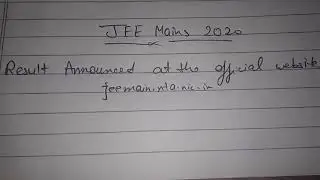 JEE Mains 2020
Result Announced at the official website
jeemain.nta.nic.in